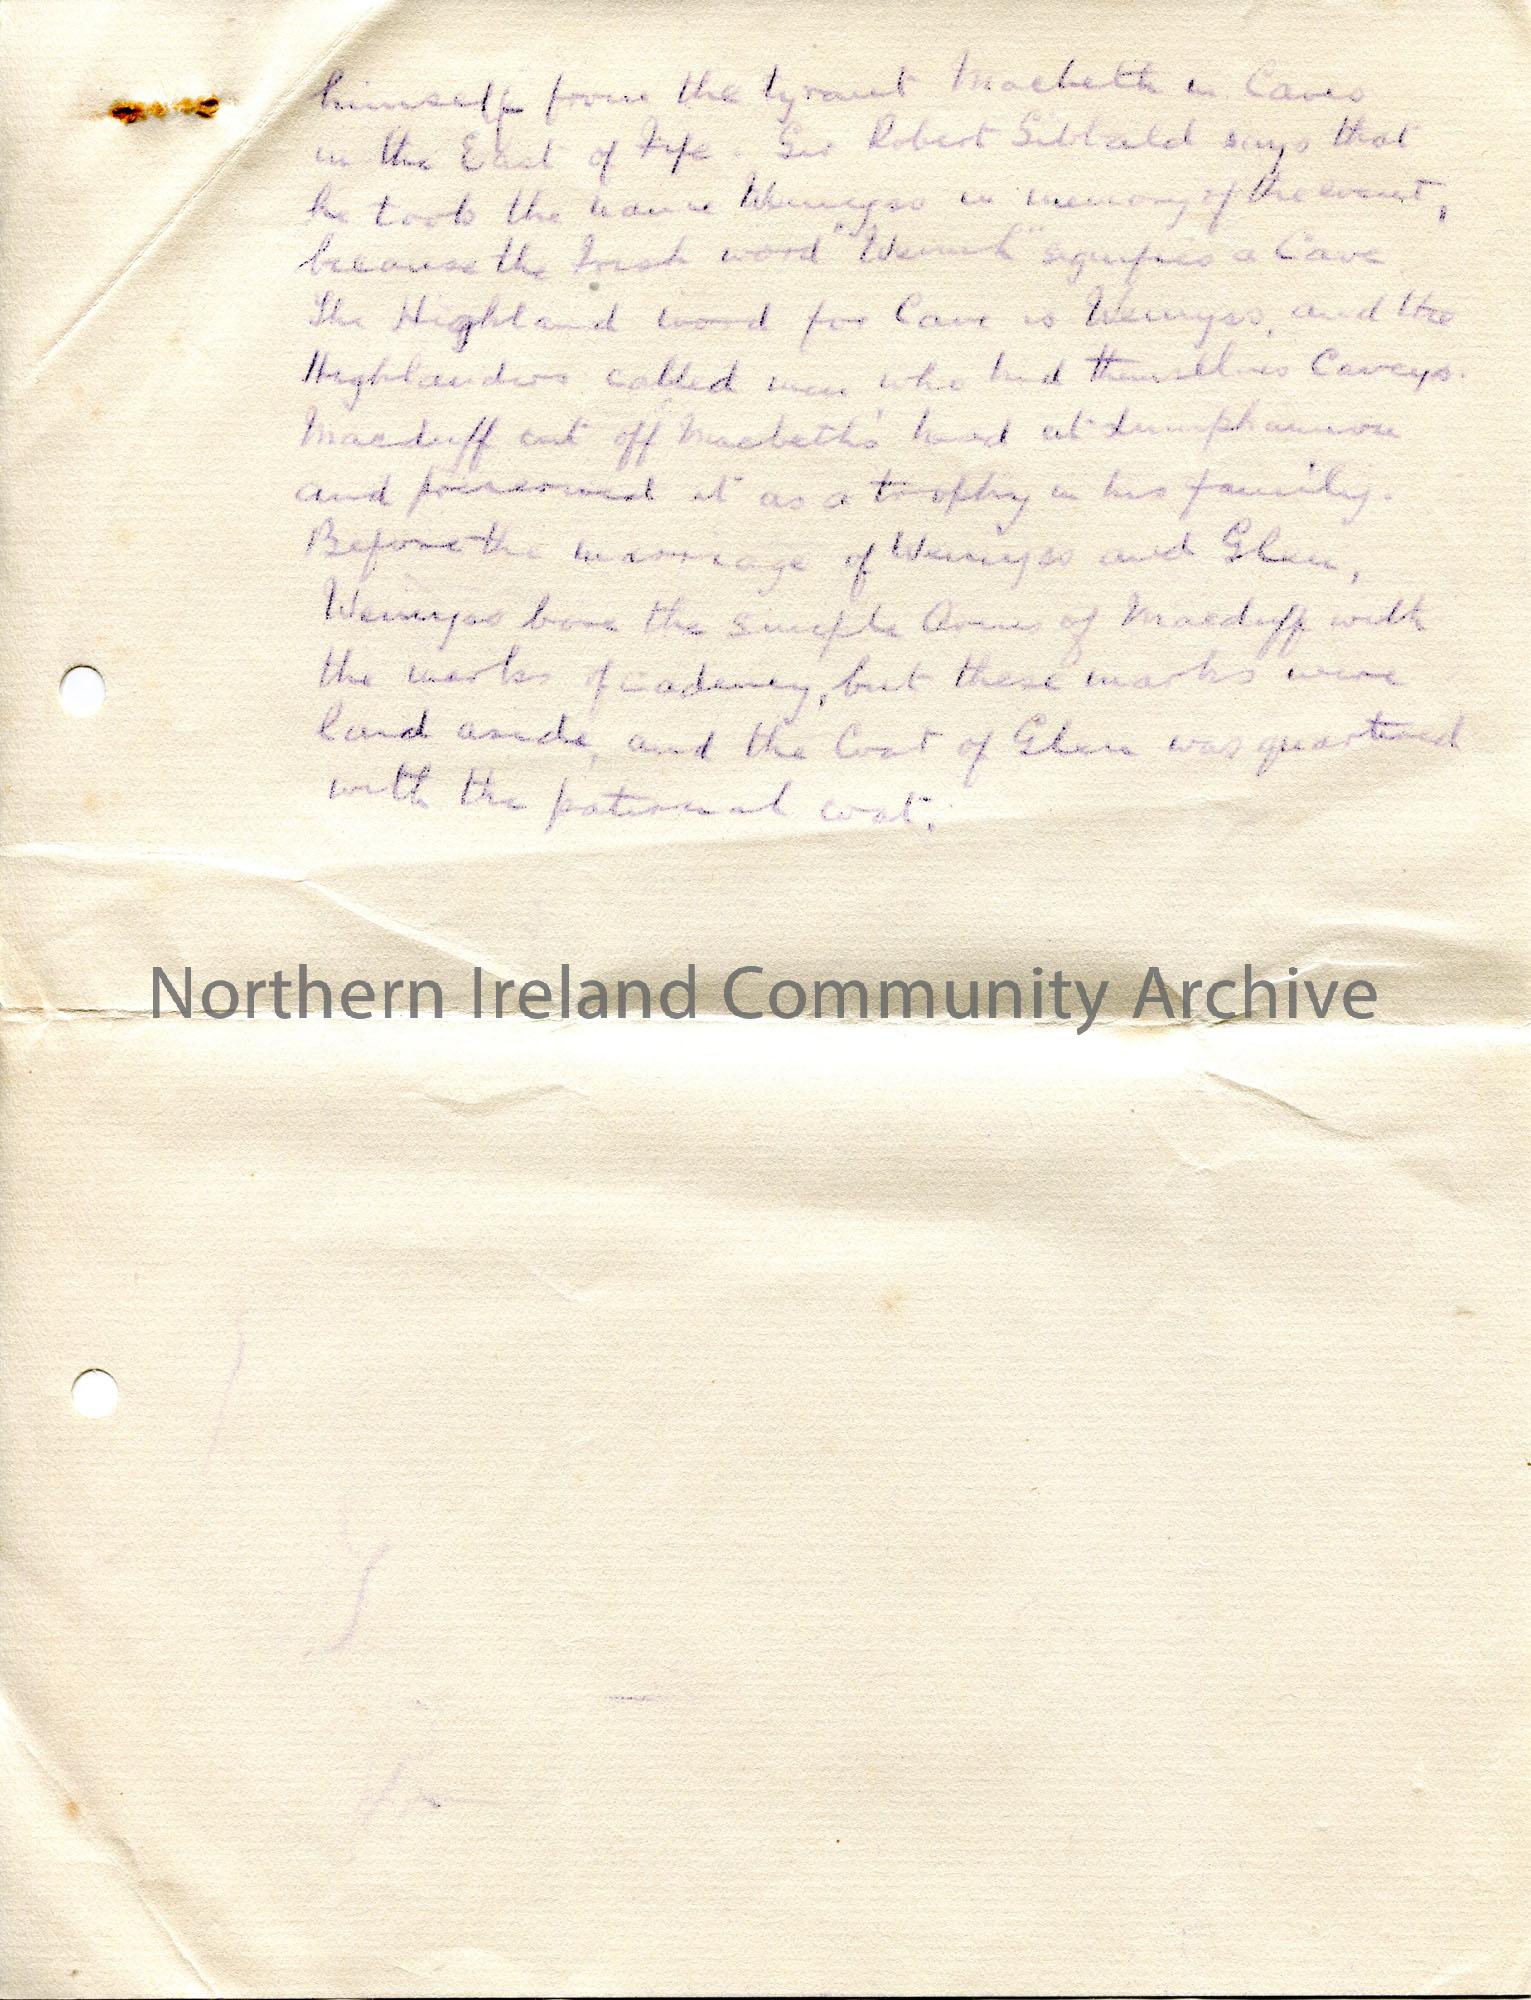 himself from the tyrant Macbeth in Caves
in the East of Fife. Sir Robert Sibbald says that
he took the name Wemyss in memory of the event,
because the Irish word "Wemh" signifies a Cave
The Highland word for Cave is Wemyss, and the
Highlanders called men who hid themselves Caveys.
Macduff cut off Macbeth's head at Lumphannon
and preserved it as a trophy in his family.
Before the marriage of Wemyss and Glen,
Wemyss bore the simple Arms of Macduff with
the marks of cadency, but these marks were
laid aside, and the Coat of Glen was quartered
with the paternal coat.
Northern Ireland Community Archive